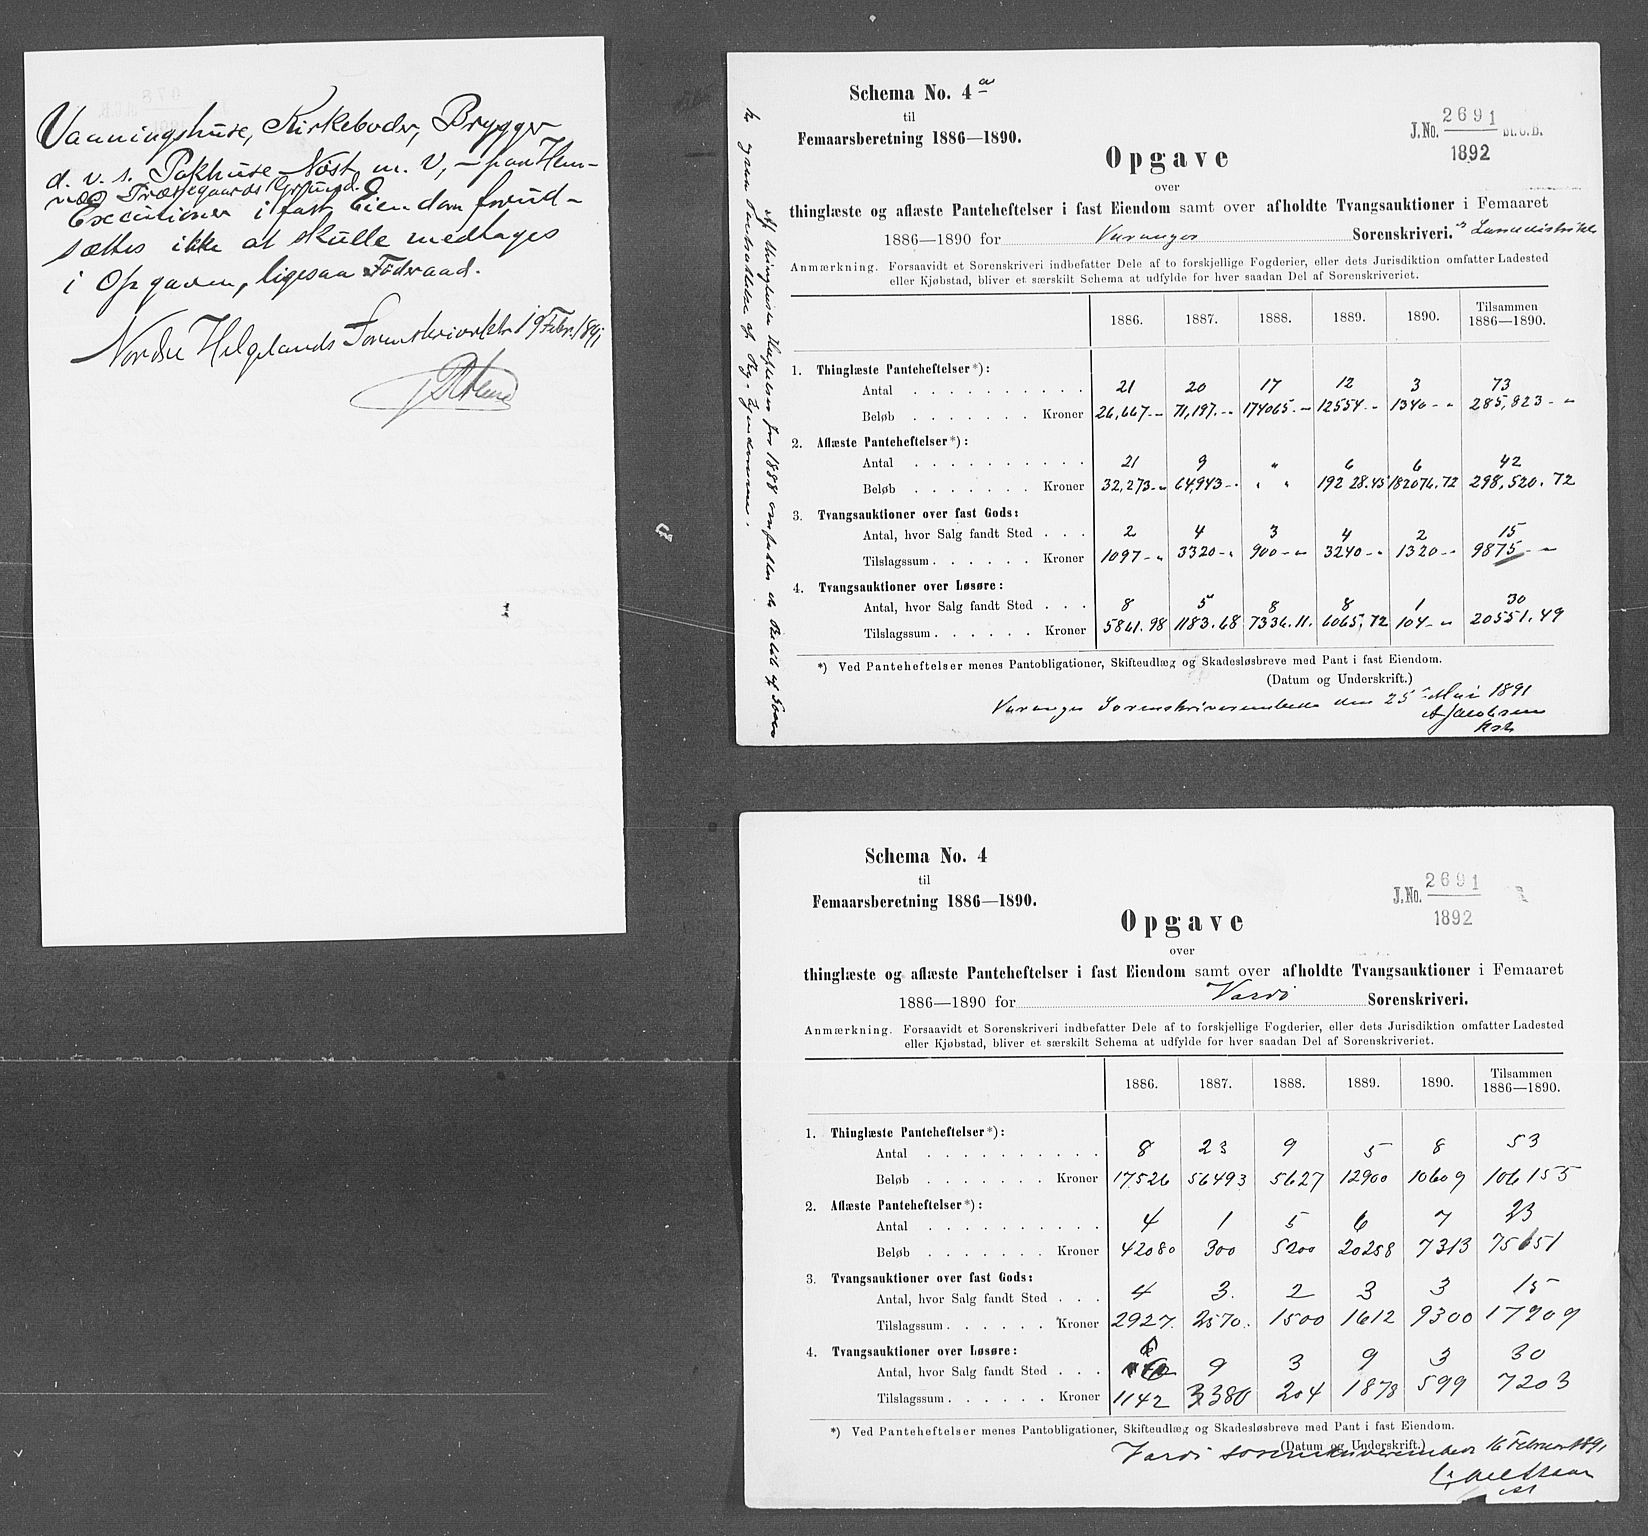 Vaaningshuse, Kirkeboder, Brygger
d. v. s. Pakhuse Nöst m. V, – paa Hem-
Grund.
Executioner i fast Eiendom forud-
sættes ikke at skulle medtages
i Opgaven, ligesaa Föderaad.
Nordre Helgelands Sorenskriverkt 19 Febr. 1891
Schema No. 4 a
til
Femaarsberetning 1886—1890.
J.No. 2691 St.C.B.
1892
Opgave
over
thinglæste og aflæste Panteheftelser i fast Eiendom samt over afholdte Tvangsauktioner i Femaaret
1886—1890 for Varanger Sorenskriveri. Landdistrikt
Anmærkning. Forsaavidt et Sorenskriveri indbefatter Dele af to forskjellige Fogderier, eller dets Jurisdiktion omfatter Ladested
eller Kjøbstad, bliver et særskilt Schema at udfylde for hver saadan Del af Sorenskriveriet.
1886. 1887. 1888. 1889. 1890. Tilsammen 1886—1890.
1. Thinglæste Panteheftelser*):
Antal 21 20 17 12 3 73
Beløb Kroner 26,667 – „ 71,197. – „ 174065 – „ 12554 – „ 1340 – „ 285,823 – „
2. Aflæste Panteheftelser*):
Antal 21 9 „ 6 6 42
Beløb Kroner 32,273 – „ 64,943 – „ „ „ 19228.45 182076.72 298,520.72
3. Tvangsauktioner over fast Gods:
Antal, hvor Salg fandt Sted 2 4 3 4 2 15
Tilslagssum Kroner 1097 – „ 3320 – „ 900 – „ 3240 – „ 1320 – „ 9875 – „
4. Tvangsauktioner over Løsøre:
Antal, hvor Salg fandt Sted 8 5 8 8 1 30
Tilslagssum Kroner 5861.98 1183.68 7336.11. 6065.72 104 – „ 20551.49
*) Ved Panteheftelser menes Pantobligationer, Skifteudlæg og Skadesløsbreve med Pant i fast Eiendom.
(Datum og Underskrift.)
Varanger Sorenskriverembede den 25 Mai 1891
A Jacobsen
Af thinglæste Heftelser for 1888 omfatter de Beløb af
Schema No. 4
til
Femaarsberetning 1886—1890.
J.No. 2691
1892
Opgave
over
thinglæste og aflæste Panteheftelser i fast Eiendom samt over afholdte Tvangsauktioner i Femaaret
1886—1890 for Vardö Sorenskriveri.
Anmærkning. Forsaavidt et Sorenskriveri indbefatter Dele af to forskjellige Fogderier, eller dets Jurisdiktion omfatter Ladested
eller Kjøbstad, bliver et særskilt Schema at udfylde for hver saadan Del af Sorenskriveriet.
1886. 1887. 1888. 1889. 1890. Tilsammen 1886—1890.
1. Thinglæste Panteheftelser*):
Antal 8 23 9 5 8 53
Beløb Kroner 17526 56493 5627 12900 10609 106155
2. Aflæste Panteheftelser*):
Antal 4 1 5 6 7 23
Beløb Kroner 42080 300 5200 20258 7313 75651
3. Tvangsauktioner over fast Gods:
Antal, hvor Salg fandt Sted 4 3. 2 3 3 15
Tilslagssum Kroner 2927. 2570. 1500 1612 9300 17909
4. Tvangsauktioner over Løsøre:
Antal, hvor Salg fandt Sted 6 9 3 9 3 30
Tilslagssum Kroner 1142 3380 204 1878 599 7203
*) Ved Panteheftelser menes Pantobligationer, Skifteudlæg og Skadesløsbreve med Pant i fast Eiendom.
(Datum og Underskrift.)
Vardö Sorenskriverembede 16 Februar 1891